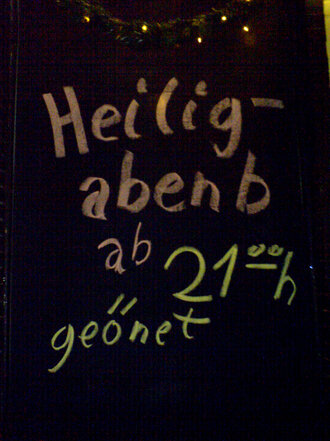 Heilig-
abenb
ab 21°°h
geőnet